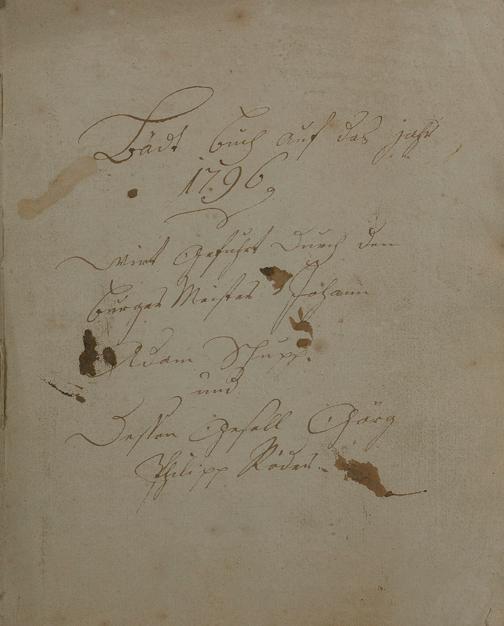 Bädt buch auf das jahr
1796
wirt Geführt durch den
burger Meister Johann
Adam Schupp.
und
Dessen Gesell Görg
Philipp Röder.